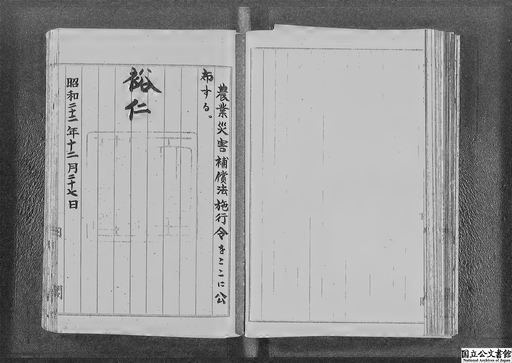 農業災害補償法施行令をここに公
布する。
裕仁
昭和二十二年十二月二十七日
国立公文書館
National Archives of Japan